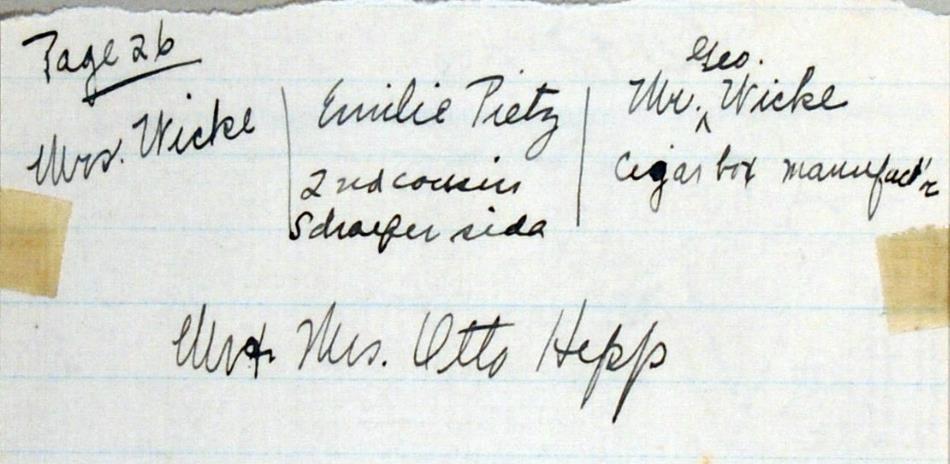 Page 26
Mrs. Wicke
Emilie Pietz
2nd cousin
Schaefer side
Mr. Geo. Wicke
Cigar box manufact'r
Mr & Mrs. Otto Hepp